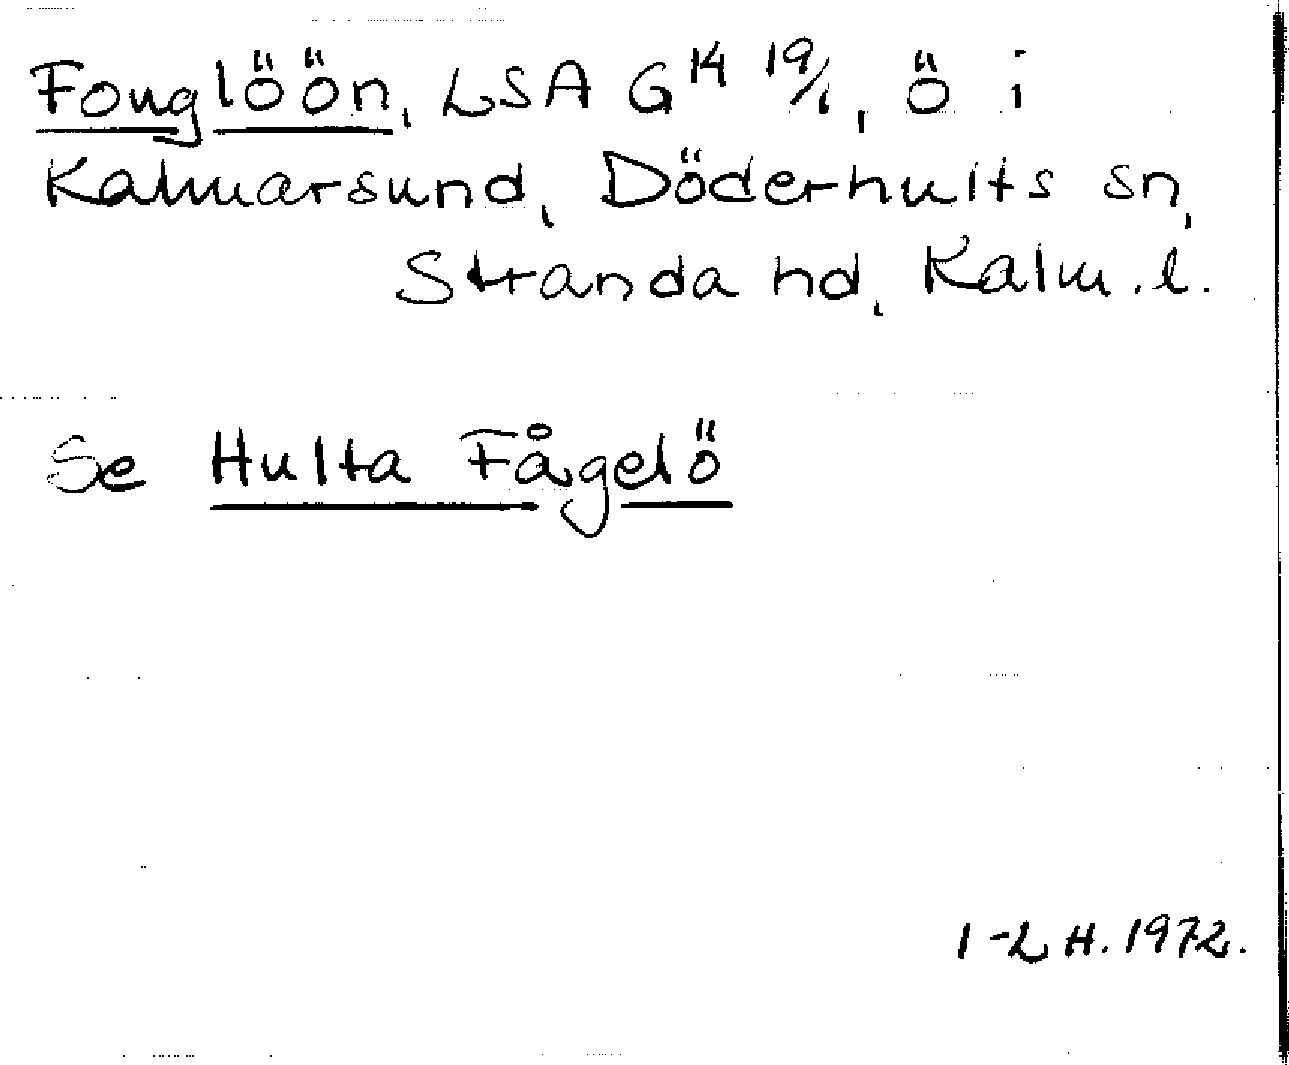 Fouglöön, LSA G¹⁴ 19/1, ö i
Kalmarsund, Döderhults sn,
Stranda hd, Kalm. l.
Se Hulta Fågelö
I-L H. 1972.